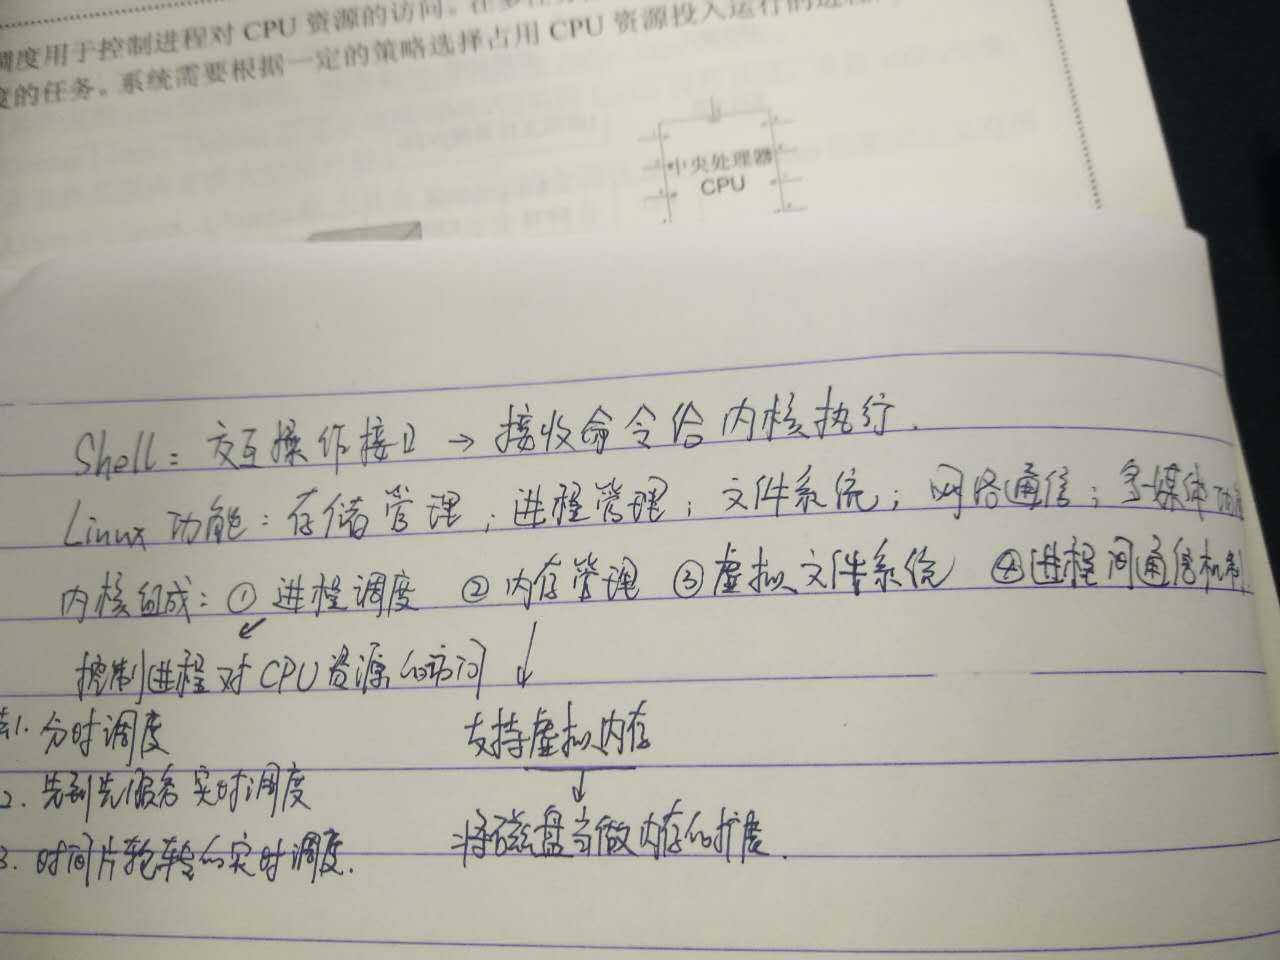 调度用于控制进程对 CPU 资源的访问。
度的任务。系统需要根据一定的策略选择占用 CPU 资源投入运行的进程
中央处理器
CPU
Shell：交互操作接口 → 接收命令给内核执行.
Linux 功能：存储管理；进程管理；文件系统；网络通信；多媒体功能
内核组成：① 进程调度 ② 内存管理 ③ 虚拟文件系统 ④ 进程间通信机制
↙ ↓
控制进程对 CPU 资源的访问
1. 分时调度 支持虚拟内存
↓
2. 先到先服务实时调度
3. 时间片轮转的实时调度. 将磁盘当做内存的扩展.